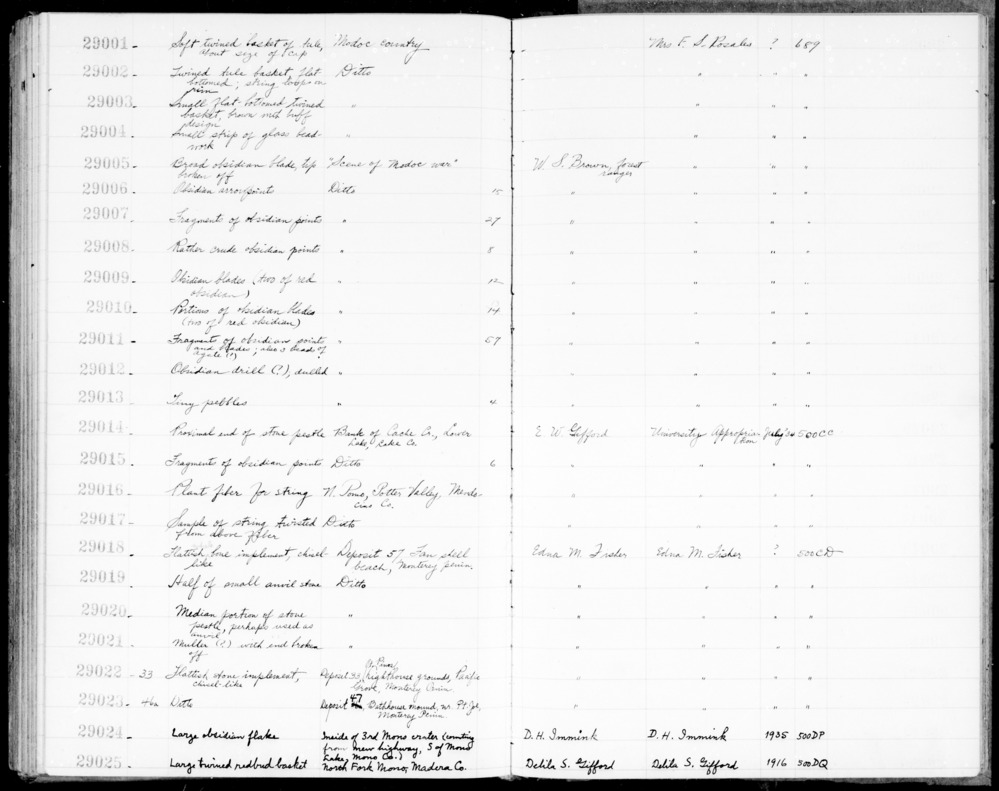 29001- Soft twined basket of tule, Modoc country Mrs F. S. Rosales ? 689
about size of cup
29002- Twined tule basket, flat Ditto " " "
bottomed; string loops on
rim
29003- Small flat-bottomed twined " " " "
basket, brown with buff
design
29004- Small strip of glass bead- " " " "
work
29005- Broad obsidian blade, tip "Scene of Modoc war" W. S. Brown, forest " " "
broken off ranger
29006- Obsidian arrowpoints Ditto 15 " " " "
29007- Fragments of obsidian points " 27 " " " "
29008- Rather crude obsidian points " 8 " " " "
29009- Obsidian blades (two of red " 12 " " " "
obsidian)
29010- Portions of obsidian blades " 14 " " " "
(two of red obsidian)
29011- Fragments of obsidian points " 57 " " " "
and blades; also 3 bead of
agate (?)
29012- Obsidian drill (?), dulled " " " " "
29013- Tiny pebbles " 4 " " " "
29014- Proximal end of stone pestle Bank of Cache Cr., Lower E. W. Gifford University Appropria- July '34 500CC
Lake, Lake Co. tion
29015- Fragments of obsidian points Ditto 6 " " " "
29016- Plant fiber for string N. Pomo, Potter Valley, Mendo- " " " "
cino Co.
29017- Sample of string twisted Ditto " " " "
from above fiber
29018- Flattish bone implement, chisel- Deposit 57, Fan shell Edna M. Fisher Edna M. Fisher ? 500CD
like beach, Monterey penin.
29019 Half of small anvil stone Ditto " " " "
29020- Median portion of stone " " " " "
pestle, perhaps used as
anvil
29021- Muller (?) with end broken " " " " "
off
29022-33 Flattish stone implement, Deposit 33, Lighthouse grounds, Pacific " " " "
chisel-like Grove, Monterey Penin
29023-46a Ditto Deposit 47, Bathhouse mound, nr. Pt. Joe, " " " "
Monterey Penin.
29024- Large obsidian flake Inside of 3rd Mono crater (counting D. H. Immink D. H. Immink 1935 500DP
from new highway, S of Mono
Lake, Mono Co.)
29025- Large twined redbud basket North Fork Mono, Madera Co. Delila S. Gifford Delila S. Gifford 1916 500DQ